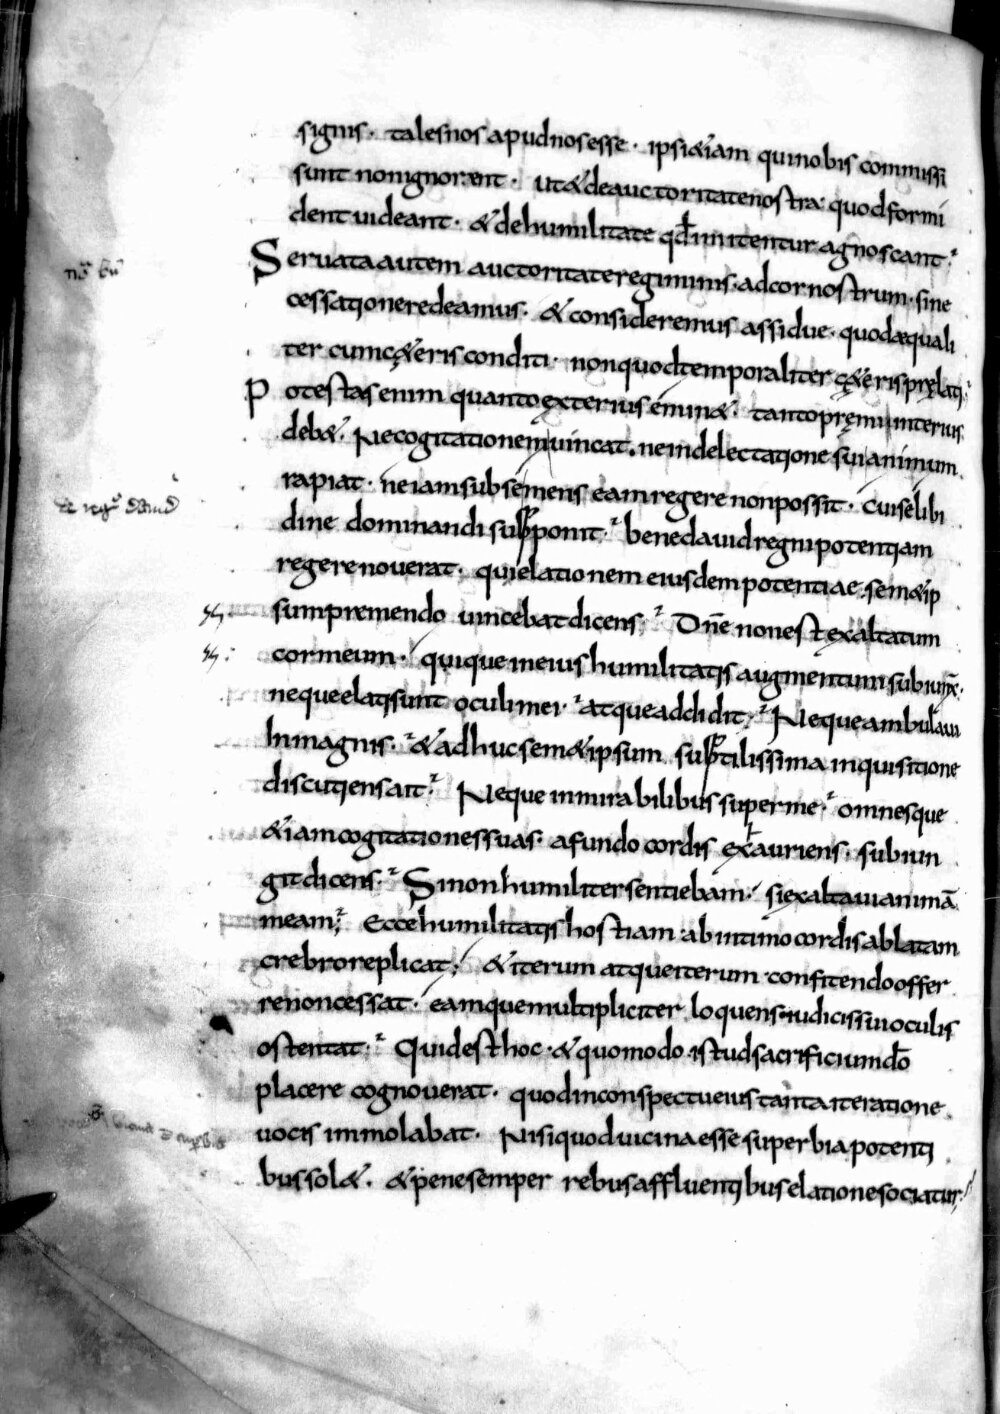 signis· tales nos apud nos esse· ipsi &iam qui nobis commissi
sunt non ignorent· ut & de auctoritate nostra quod formi
dent uideant· & de humilitate qđ imitentur agnoscant·
Seruata autem auctoritate regiminis· ad cor nostrum· sine
cessatione redeamus· & consideremus assidue· quod aequali
ter cum cę&eris conditi· non quod temporaliter cę&eris pręlati·
Potestas enim quanto exterius emin&· tanto pręmi interius
deb&· Ne cogitationem uincat· ne in delectatione sui animum
rapiat· ne iam sub se mens eam regere non possit· cui se libi
dine dominandi supponit· bene dauid regni potentiam
regere nouerat· qui elationem eiusdem potentiae sem&ip
sum premendo uincebat dicens· Dn̄e non est exaltatum
cor meum· quique in eius humilitatis augmentum subiunx̄·
neque elati sunt oculi mei· atque addidit· Neque ambulaui
In magnis· & adhuc sem&ipsum subtilissima inquisitione
discutiens ait· Neque in mirabilibus super me· omnesque
&iam cogitationes suas· a fundo cordis exhauriens· subiun
git dicens· Si non humiliter sentiebam· si exaltaui animā
meam; Ecce humilitatis hostiam ab intimo cordis ablatam
crebro replicat; & iterum atque iterum confitendo offer
re non cessat· eamque multipliciter loquens iudicis sui oculis
ostentat· Quid est hoc· & quomodo istud sacrificium dō
placere cognouerat· quod in conspectu eius tanta iteratione
uocis immolabat· Nisi quod uicina esse superbia potenti
bus sol&· & pene semper rebus affluentibus elatione sociatur;